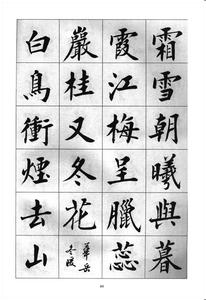 霜雪朝曦與暮
霞江梅呈臘蕊
巖桂又冬花
華岳
冬暖
白鳥衝煙去山